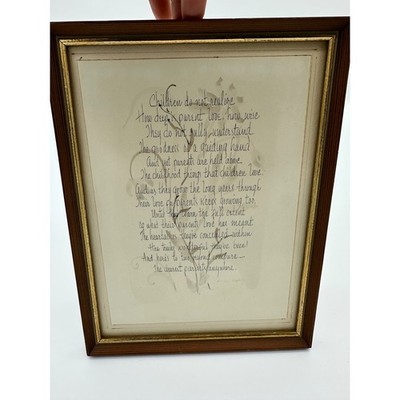 Children do not realize
How deep a parent love, how wise
They do not fully understand
The goodness of a guiding hand
And yet parents are held
The childhood things that children love
And as they grow the long years through
Their love for parents keeps growing too,
Until they learn the full extent
Of what their parents' love has meant
The heartaches they've concealed within
How truly wonderful they've been!
And here's to two beyond compare —
The dearest parents anywhere